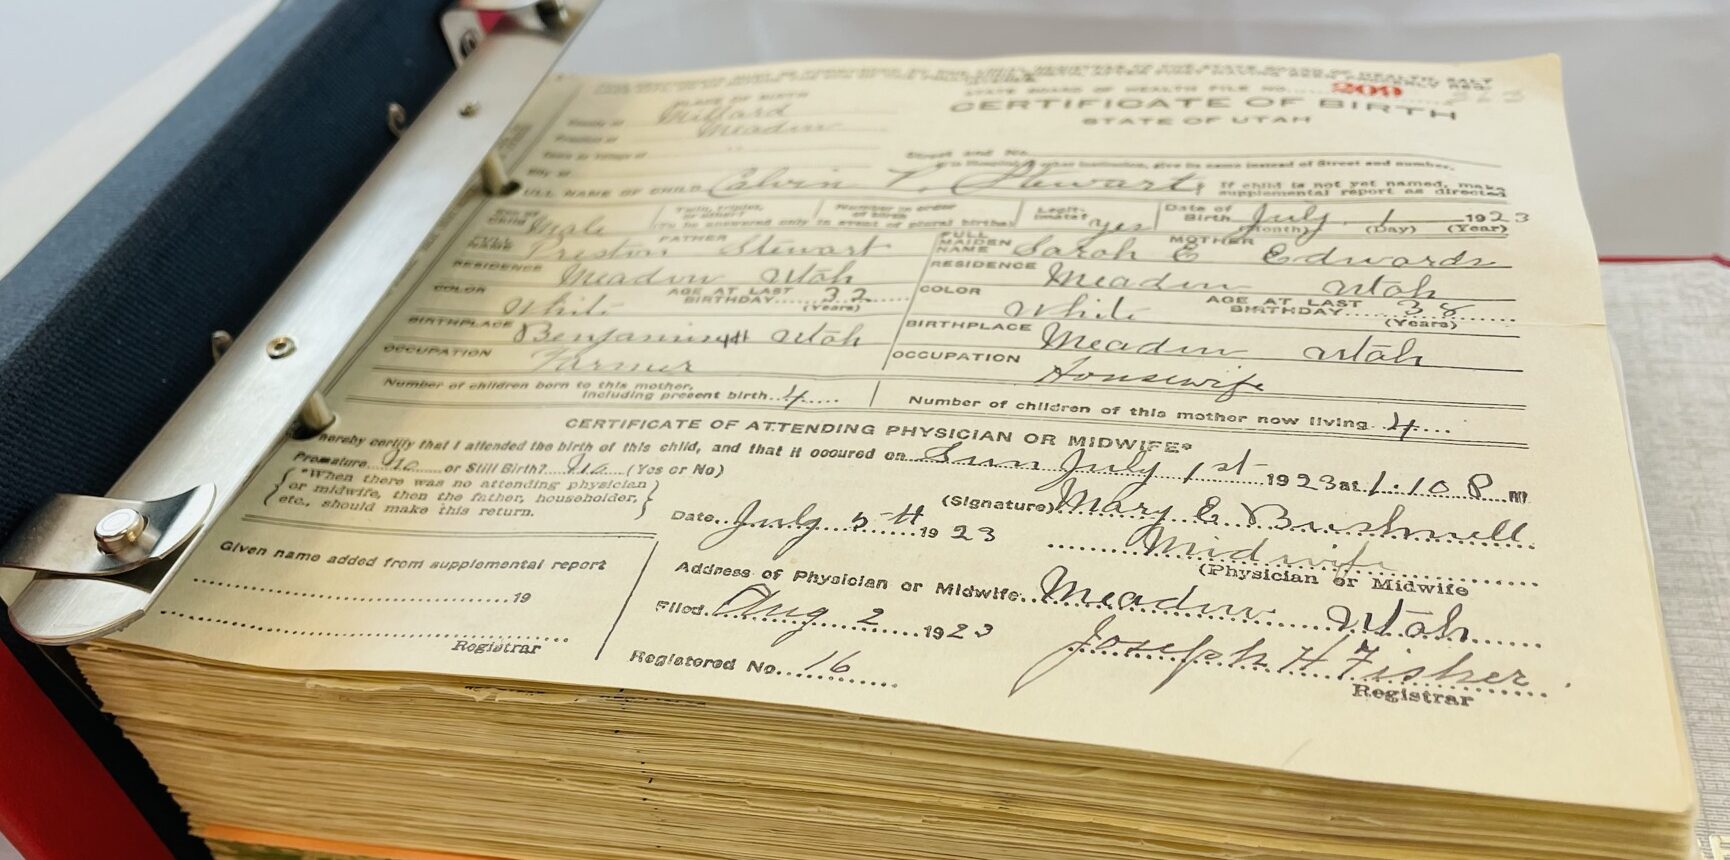 STATE BOARD OF HEALTH FILE NO. 209
CERTIFICATE OF BIRTH
STATE OF UTAH
PLACE OF BIRTH
County of Millard
Precinct of Meadow
Town or Village of "
City of
Street and No.
(If in Hospital or other institution, give its name instead of Street and number.
FULL NAME OF CHILD Calvin P. Stewart
If child is not yet named, make
supplemental report as directed
Sex of
Child Male
Twin, triplet,
or other?
Number in order
of birth
(To be answered only in event of plural births)
Legit-
imate? Yes
Date of
Birth July 1 1923
(Month) (Day) (Year)
FATHER
FULL
NAME Preston Stewart
RESIDENCE Meadow Utah
COLOR White
AGE AT LAST
BIRTHDAY 32
(Years)
BIRTHPLACE Benjamin Utah
OCCUPATION Farmer
MOTHER
FULL
MAIDEN
NAME Sarah E Edwards
RESIDENCE Meadow Utah
COLOR White
AGE AT LAST
BIRTHDAY 38
(Years)
BIRTHPLACE Meadow Utah
OCCUPATION Housewife
Number of children born to this mother,
including present birth 4
Number of children of this mother now living 4
CERTIFICATE OF ATTENDING PHYSICIAN OR MIDWIFE*
hereby certify that I attended the birth of this child, and that it occured on Sun July 1st 1923 at 1:10 P m
Premature No or Still Birth? No (Yes or No)
*When there was no attending physician
or midwife, then the father, householder,
etc., should make this return.
(Signature) Mary E Bushnell
Date July 5 1923
Midwife
(Physician or Midwife
Address of Physician or Midwife Meadow Utah
Given name added from supplemental report
19
Registrar
Filed Aug 2 1923
Registered No. 16
Joseph H Fisher
Registrar